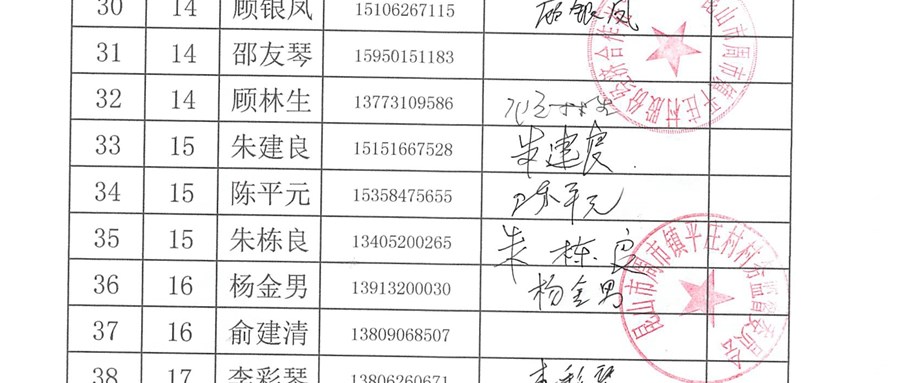 30 14 顾银凤 15106267115 顾银凤
31 14 邵友琴 15950151183
32 14 顾林生 13773109586
33 15 朱建良 15151667528 朱建良
34 15 陈平元 15358475655 陈平元
35 15 朱栋良 13405200265 朱栋良
36 16 杨金男 13913200030 杨金男
37 16 俞建清 13809068507
38 17 李彩琴 13806260671 李彩琴
昆山市周市镇平庄村股份经济合作
昆山市周市镇平庄村村务监督委员会